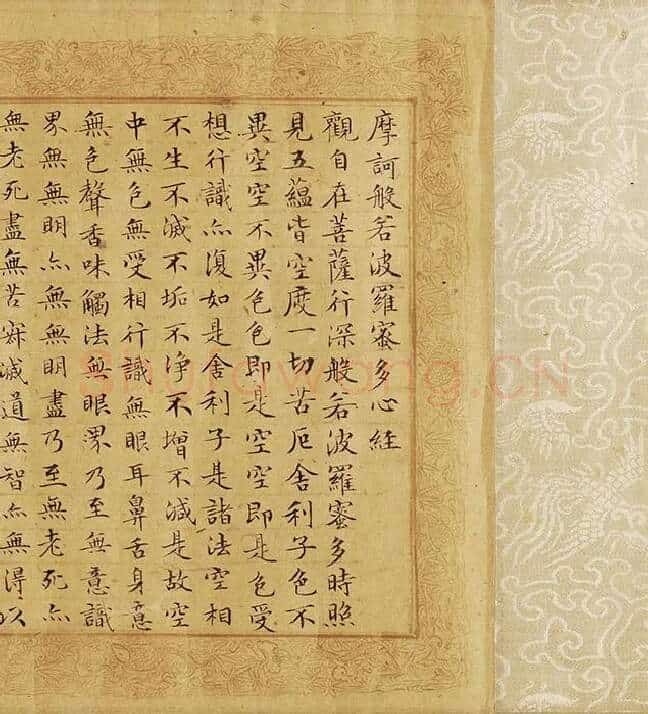 摩訶般若波羅蜜多心経
觀自在菩薩行深般若波羅蜜多時照
見五蘊皆空度一切苦厄舍利子色不
異空空不異色色即是空空即是色受
想行識亦復如是舍利子是諸法空相
不生不滅不垢不淨不增不減是故空
中無色無受相行識無眼耳鼻舌身意
無色聲香味觸法無眼界乃至無意識
界無無明亦無無明盡乃至無老死亦
無老死盡無苦寂滅道無智亦無得以
Shufawang.CN